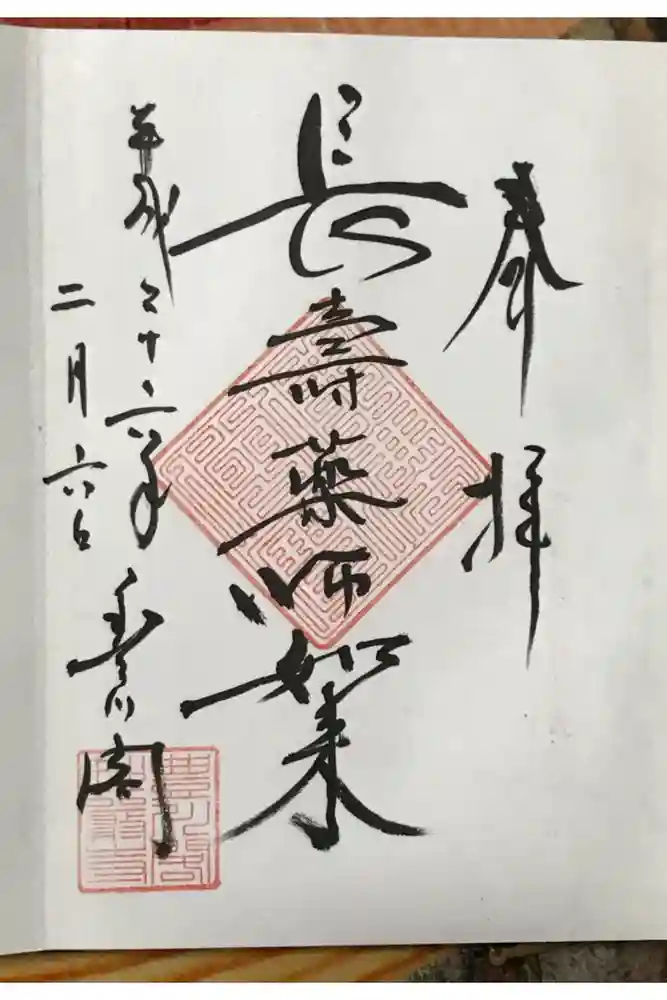 奉拝
長壽薬師如来
平成二十六年
二月六日
閣